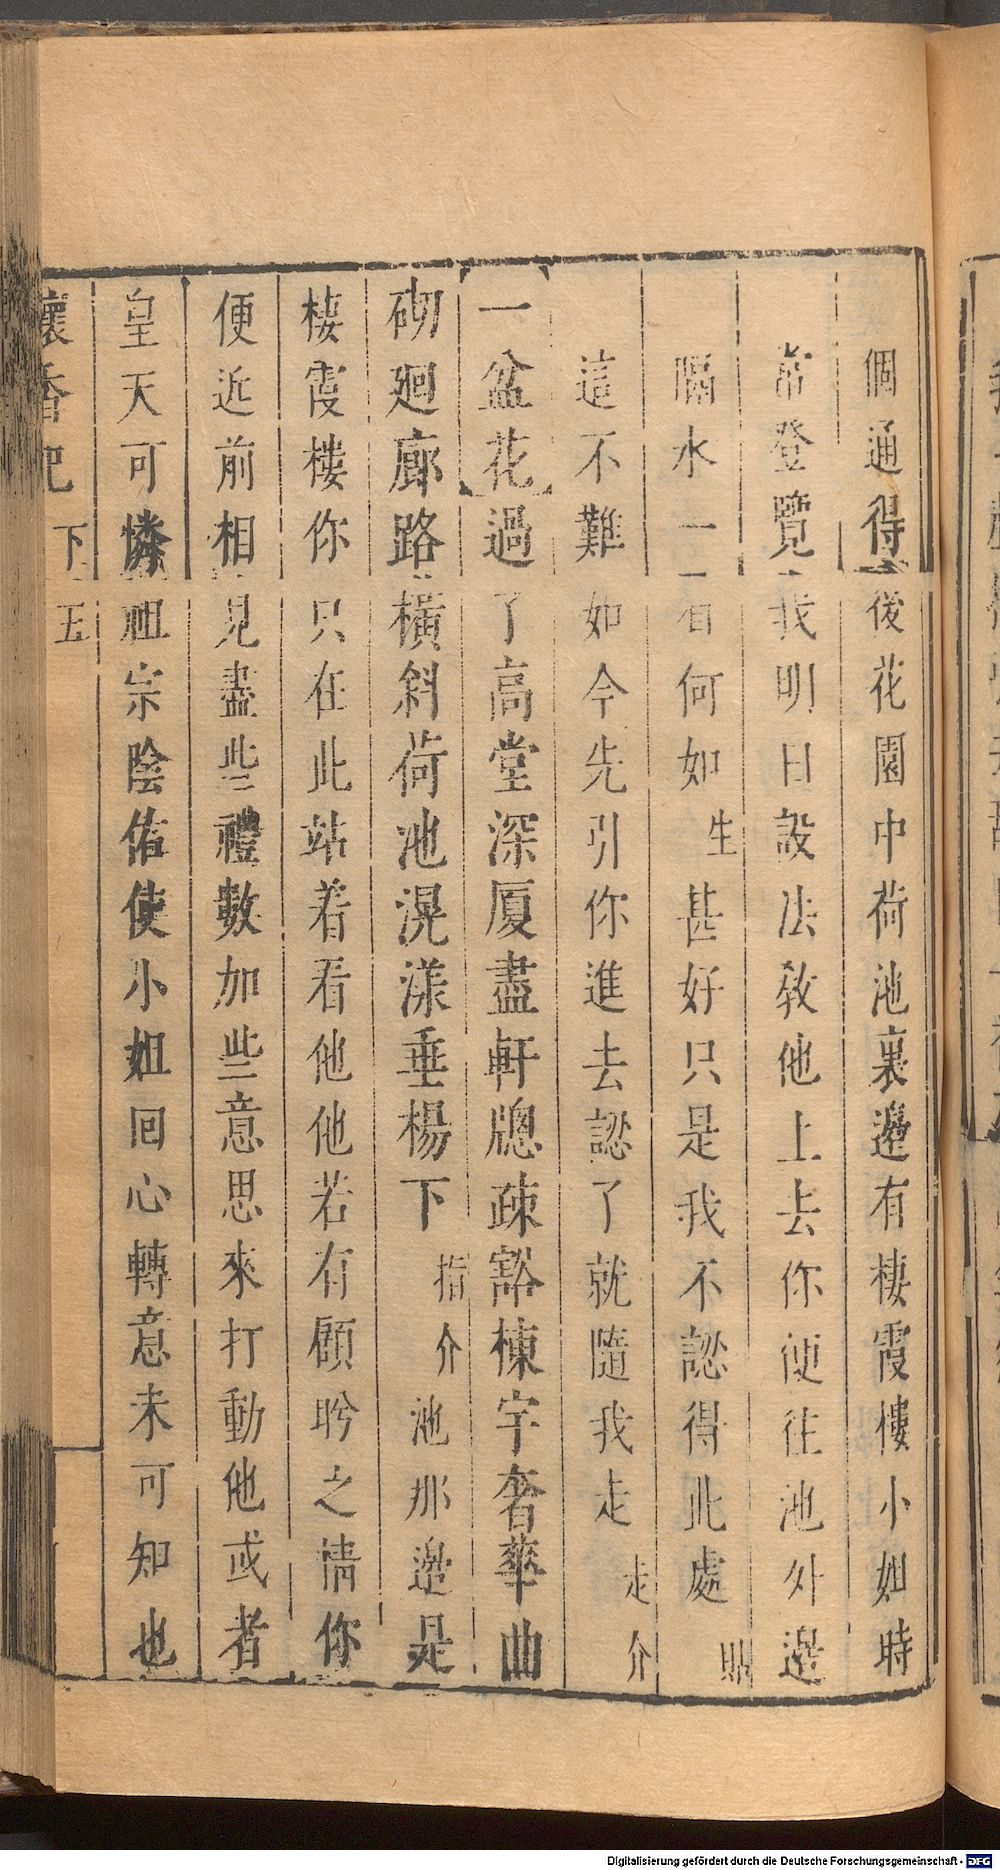 個通得後花園中荷池裏邊有棲霞樓小姐時
常登覽我明日設法教他上去你便往池外邊
隔水一看何如生甚好只是我不認得此處貼
這不難如今先引你進去認了就隨我走走介
一盆花過了高堂深厦盡軒牎疎豁棟宇奢華曲
砌廻廊路橫斜荷池滉漾垂楊下指介池那邊是
棲霞樓你只在此站着看他他若有顧盻之情你
便近前相見盡些禮數加些意思來打動他或者
皇天可憐祖宗陰佑使小姐回心轉意未可知也
懷香記 下 五
Digitalisierung gefördert durch die Deutsche Forschungsgemeinschaft - DFG